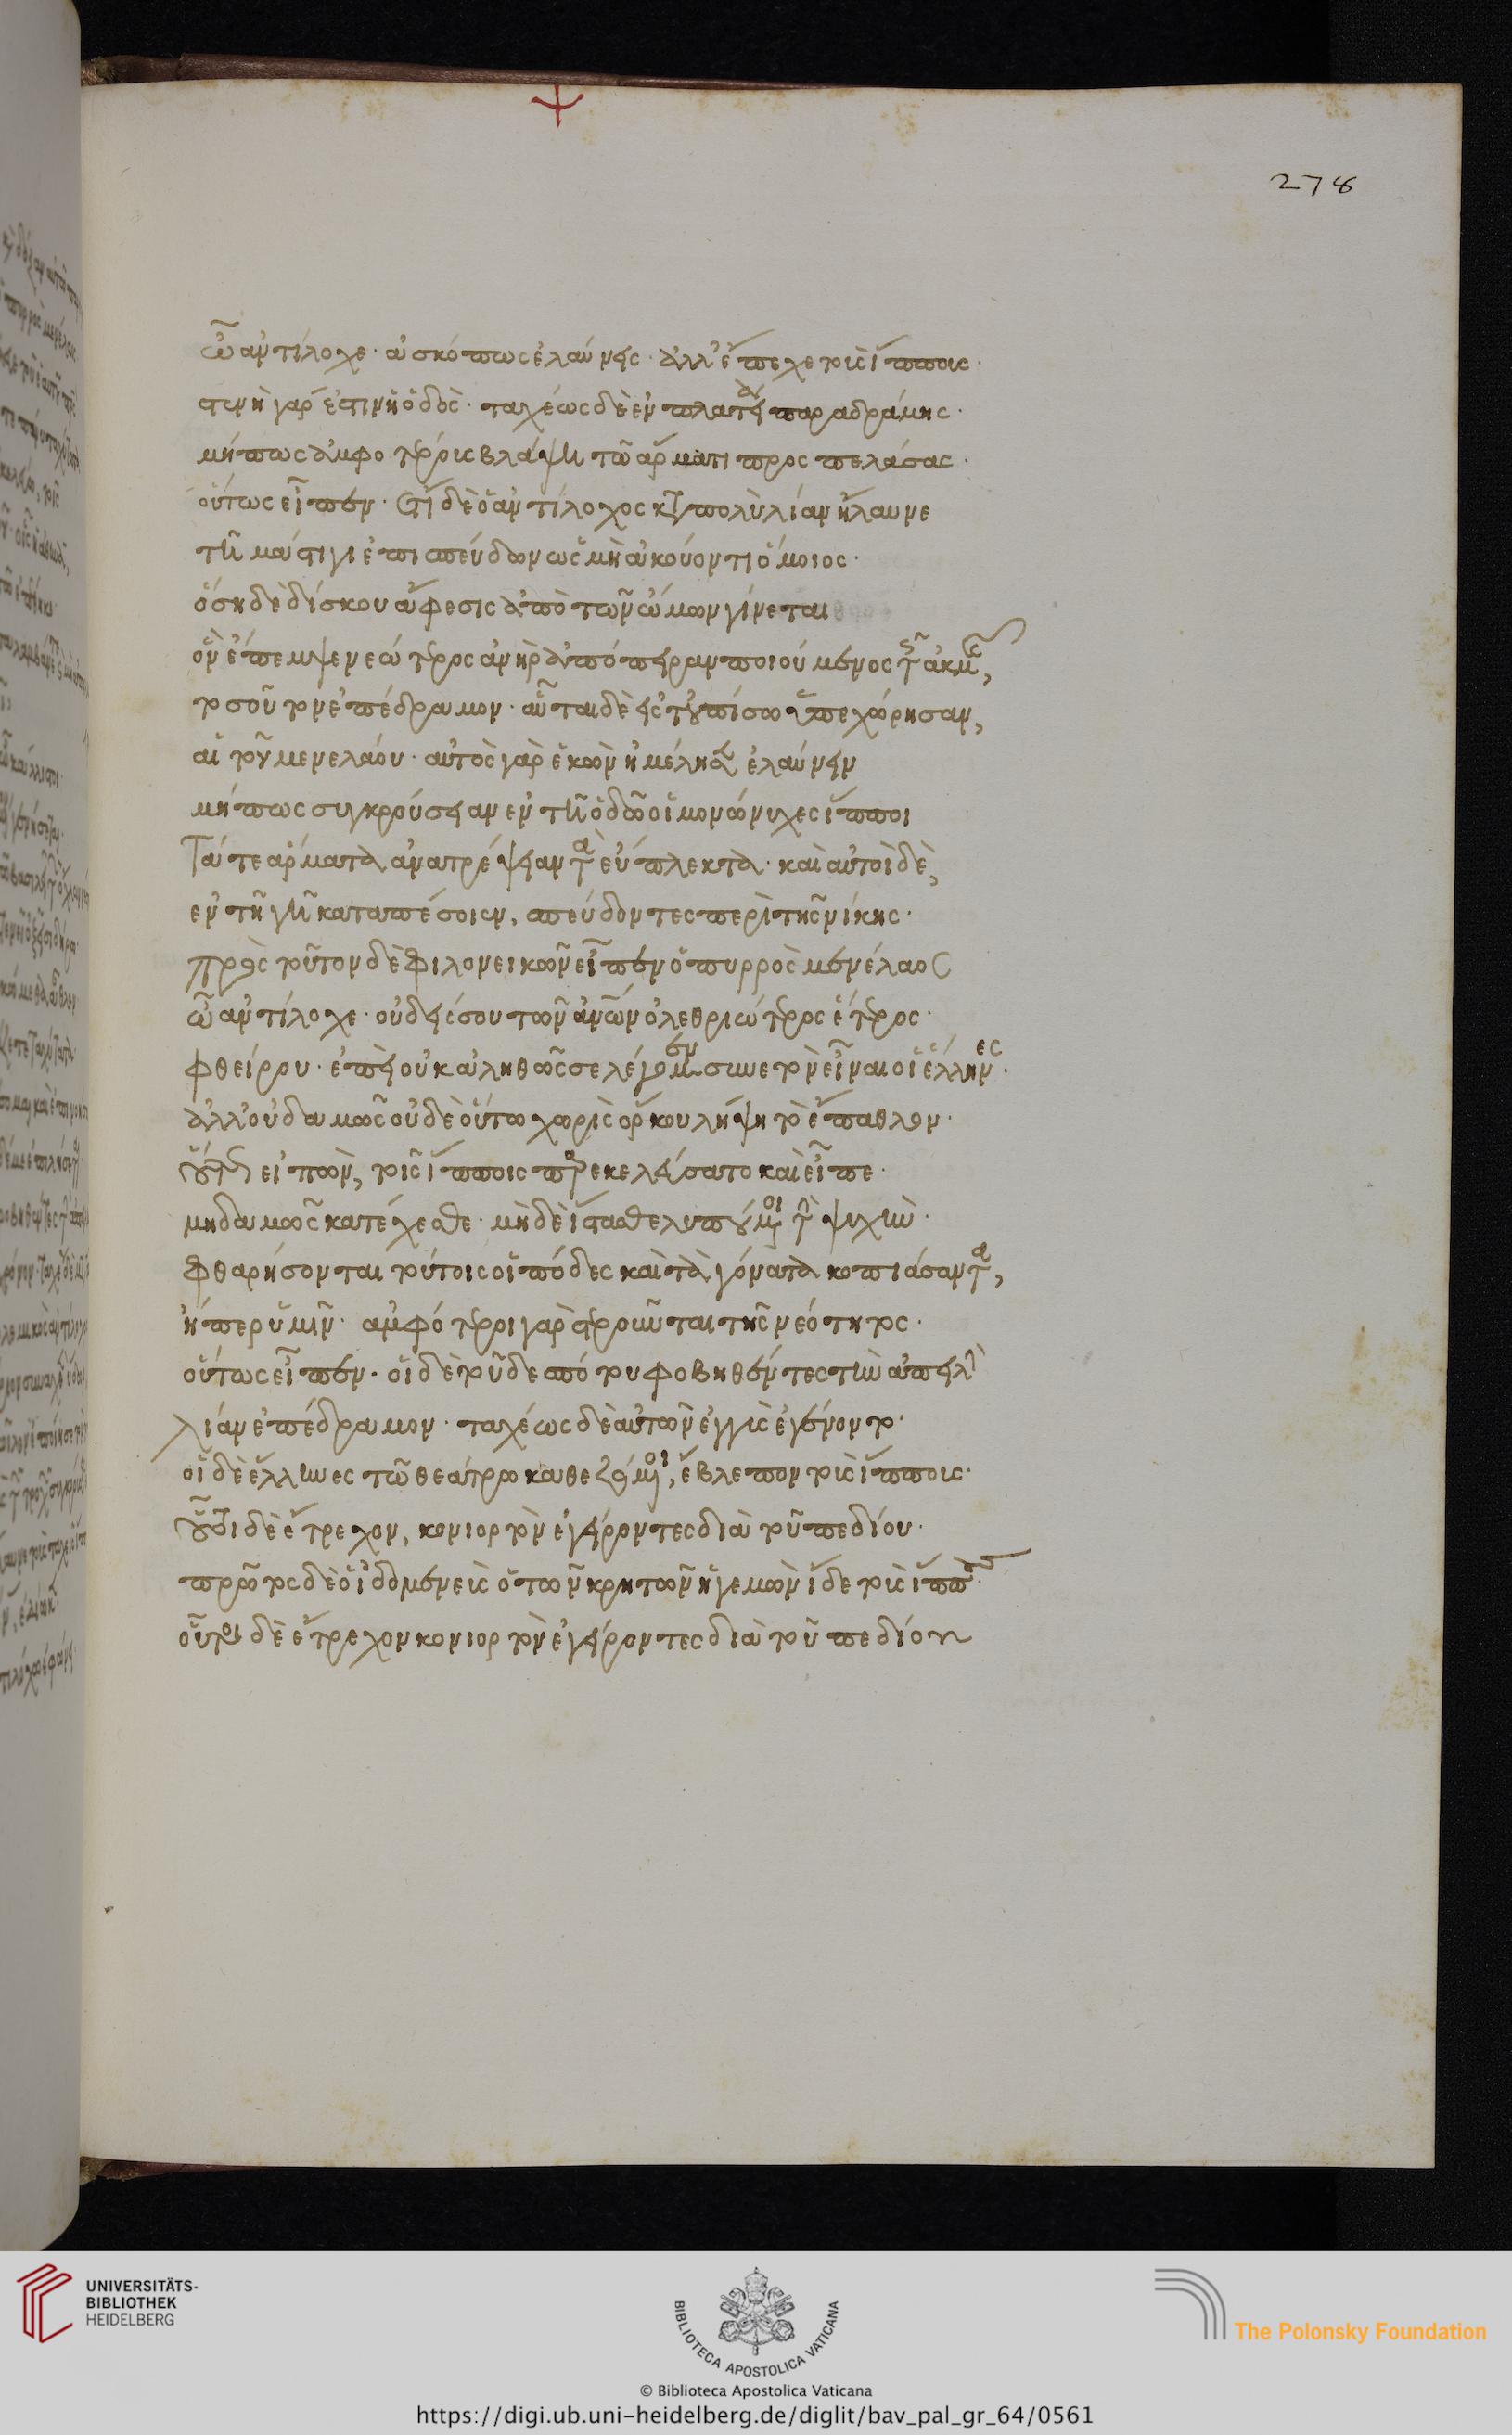 278
ὦ ἀντίλοχε· ἀσκόπως ἐλαύνεις· ἀλλ' ἔπεχε τοὺς ἵππους·
στενὴ γὰρ ἐστὶν ἡ ὁδὸς· ταχέως δὲ ἐν πλατεία παραδράμης·
μήπως ἀμφοτέρους βλάψη τῶ ἅρματι προσπελάσας·
οὕτως εἶπεν· ἔτι δὲ ὁ ἀντίλοχος καὶ πολὺ λίαν ἤλαυνε
τῆ μάστιγι ἐπισπεύδων ὡς μὴ ἀκούοντι ὅμοιος·
ὅση δὲ δίσκου ἄφεσις ἀπὸ τῶν ὤμων γίνεται
ὃν ἔπεμψε νεώτερος ἀνὴρ ἀπόπειραν ποιούμενος τῆς ἀκμῆς,
τοσοῦτον ἐπέδραμον· αὗται δὲ εἰς τοὐπίσω ὑπεχώρησαν,
αἱ τοῦ μενελάου· αὐτὸς γὰρ ἑκὼν ἠμέλησεν ἐλαύνειν
μήπως συγκρούσειαν ἐν τῆ ὁδῶ οἱ μονώνυχες ἵπποι
Τάτε ἅρματα ἀνατρέψειαν τὰ εὔπλεκτα· καὶ αὐτοὶ δὲ,
ἐν τῆ γῆ καταπέσοιεν, σπεύδοντες περὶ τῆς νίκης·
πρὸς τοῦτον δὲ φιλονεικῶν εἶπεν ὁ πυρρὸς μενέλαος
ὦ ἀντίλοχε· οὐδείς σου τῶν ἀνῶν ὀλεθριώτερος ἕτερος·
φθείρου· ἐπεὶ οὐκ ἀληθῶς σε λέγομεν συνετὸν εἶναι οἱ ἕλληνες·
ἀλλ' οὐδαμῶς οὐδὲ οὕτω χωρὶς ὅρκου λήψη τὸ ἔπαθλον·
οὕτως εἰπὼν, τοῖς ἵπποις παρεκελεύσατο καὶ εἶπε·
μηδαμῶς κατέχεσθε· μὴ δὲ ἵστασθε λυπούμενοι τὴν ψυχὴν·
φθαρήσονται τούτοις οἱ πόδες καὶ τὰ γόνατα κοπιάσαντα,
ἤπερ ὑμῖν· ἀμφότεροι γὰρ στεροῦνται τῆς νεότητος·
οὕτως εἶπεν· οἱ δὲ τοῦ δεσπότου φοβηθέντες τὴν ἀπειλὴν
λίαν ἐπέδραμον· ταχέως δὲ αὐτῶν ἐγγὺς ἐγένοντο·
οἱ δὲ ἕλληνες τῶ θεάτρω καθεζόμενοι, ἔβλεπον τοὺς ἵππους·
οὗτοι δὲ ἔτρεχον, κονιορτὸν ἐγείροντες διὰ τοῦ πεδίου·
πρῶτος δὲ ὁ ἰδομενεὺς ὁ τῶν κρητῶν ἡγεμὼν ἴδε τοὺς ἵππους·
οὗτοι δὲ ἔτρεχον κονιορτὸν ἐγείροντες διὰ τοῦ πεδίου
UNIVERSITÄTS-
BIBLIOTHEK
HEIDELBERG
BIBLIOTECA APOSTOLICA VATICANA
The Polonsky Foundation
© Biblioteca Apostolica Vaticana
https://digi.ub.uni-heidelberg.de/diglit/bav_pal_gr_64/0561